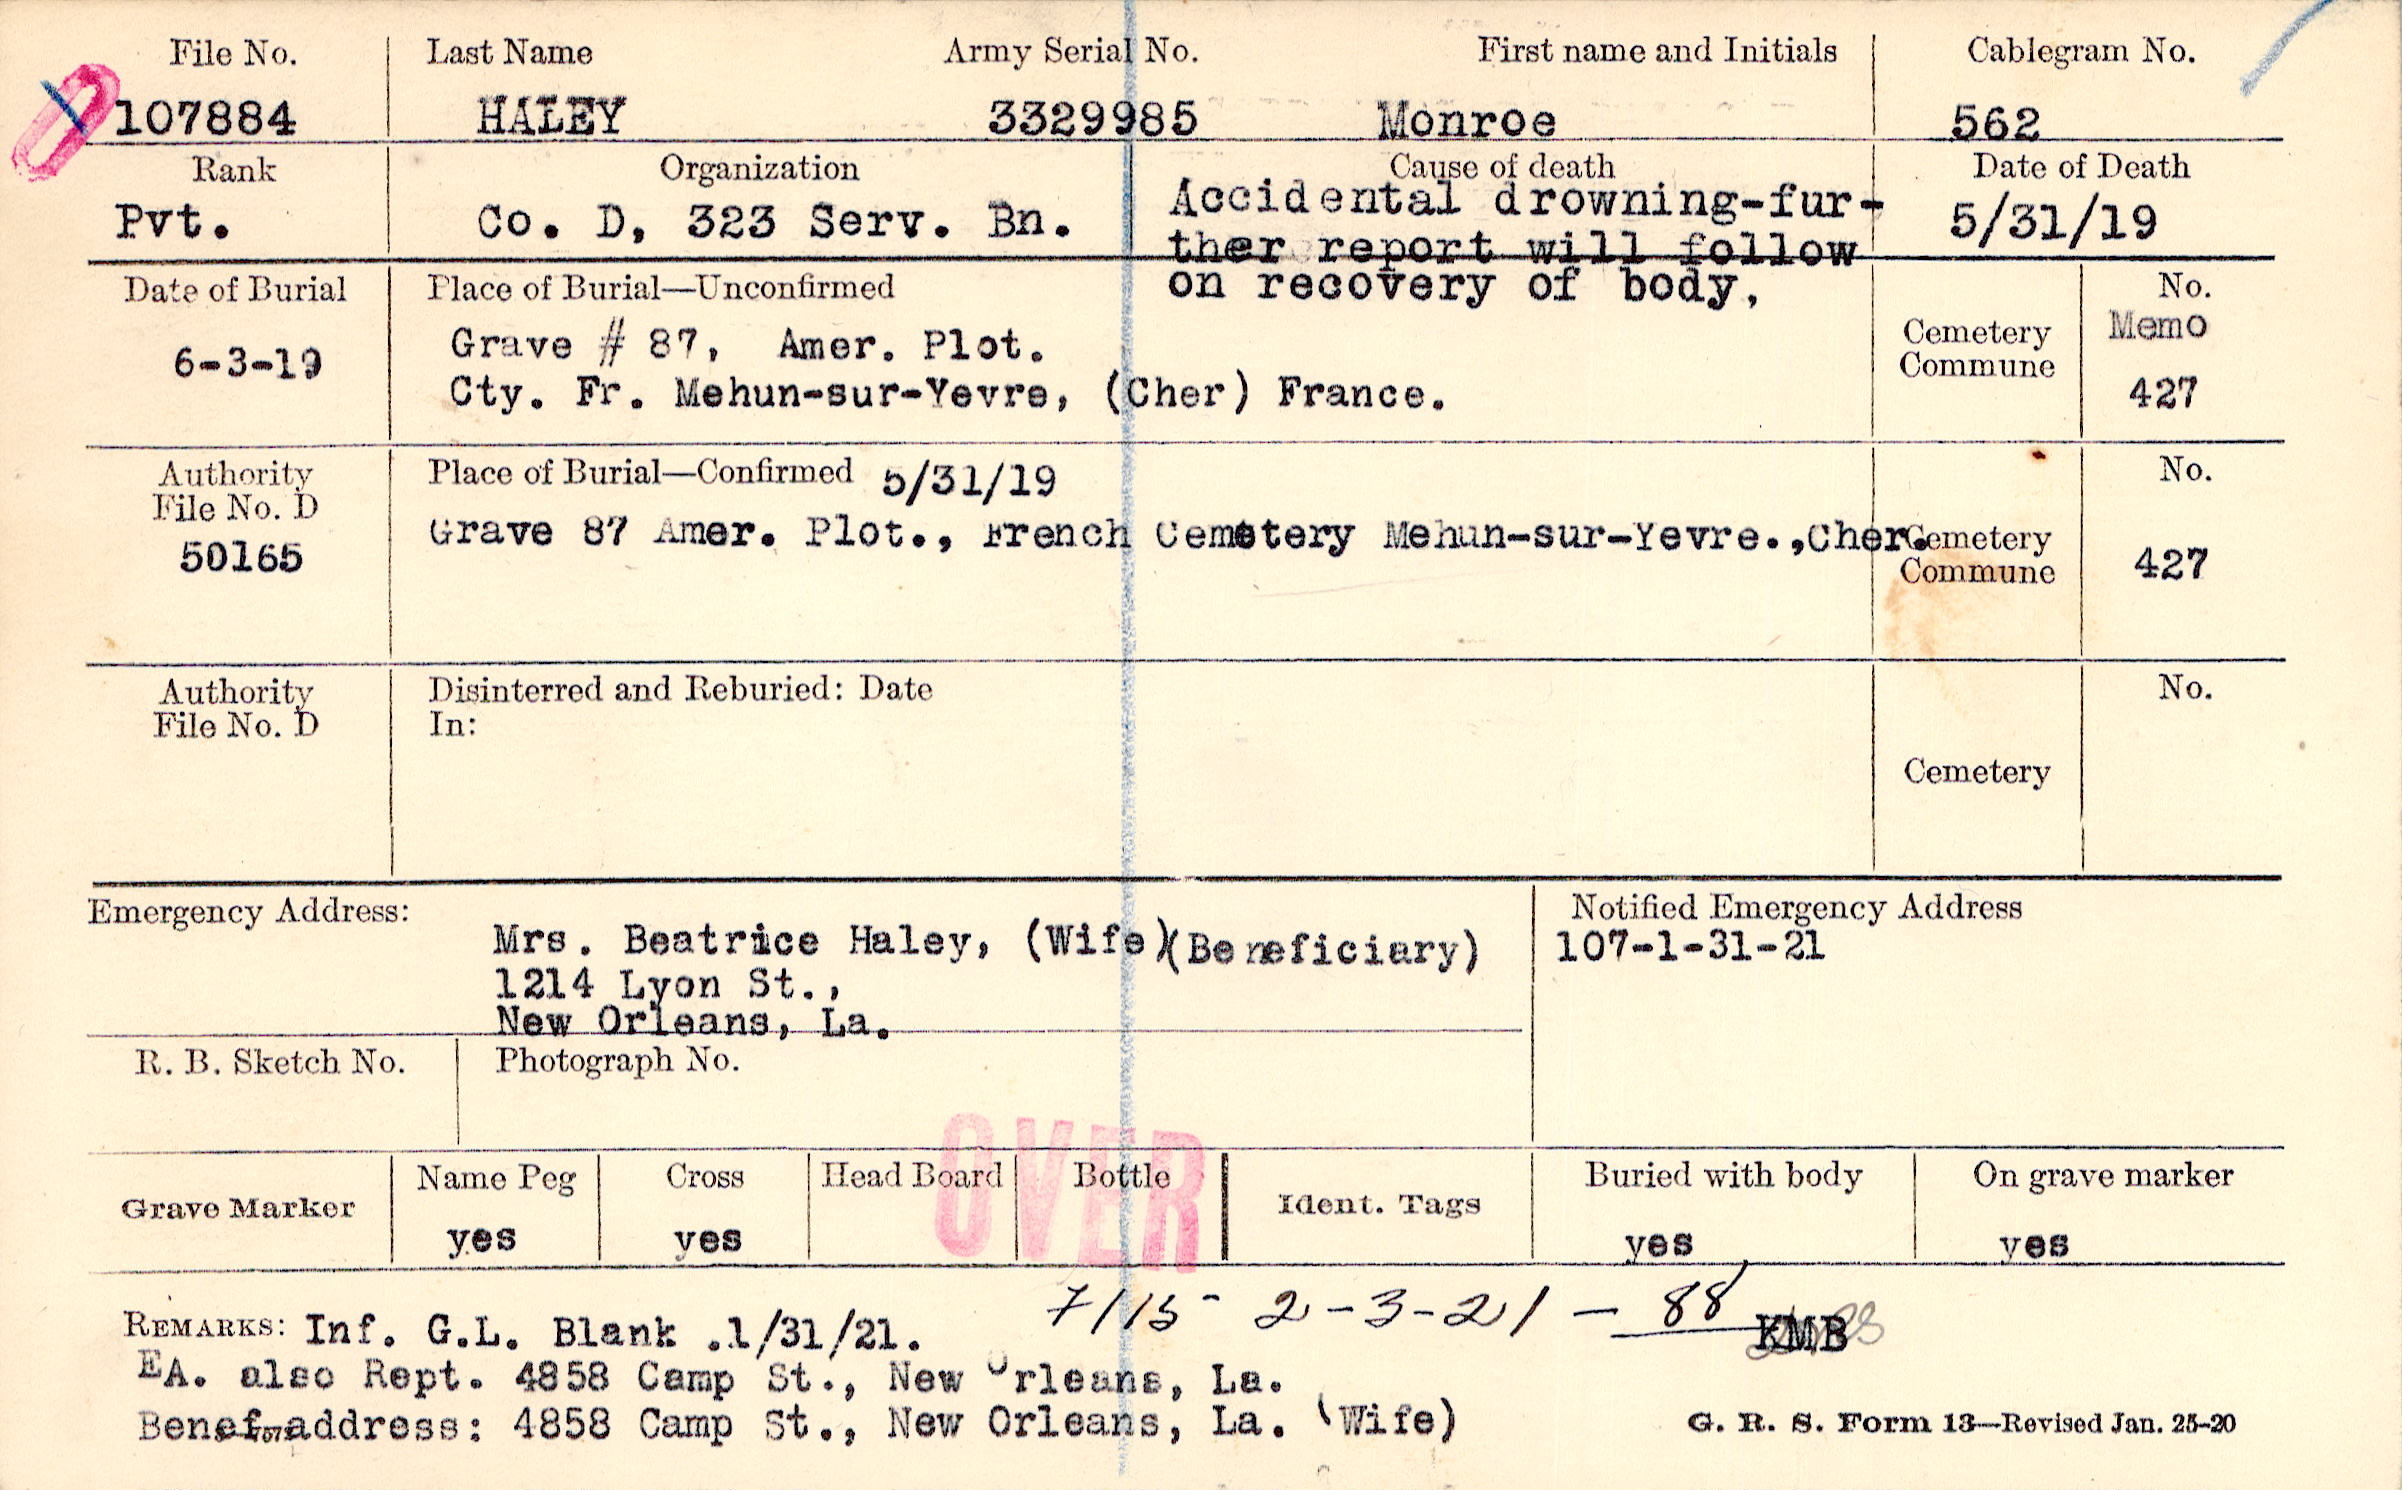 File No. Last Name Army Serial No. First name and Initials Cablegram No.
107884 HALEY 3329985 Monroe 562
Rank Organization Cause of death Date of Death
Pvt. Co. D, 323 Serv. Bn. Accidental drowning-fur- 5/31/19
ther report will follow
on recovery of body,
Date of Burial Place of Burial—Unconfirmed No.
6-3-19 Grave # 87, Amer. Plot. Cemetery Memo
Cty. Fr. Mehun-sur-Yevre, (Cher) France. Commune 427
Authority Place of Burial—Confirmed 5/31/19 No.
File No. D Grave 87 Amer. Plot., French Cemetery Mehun-sur-Yevre.,Cher. Cemetery
50165 Commune 427
Authority Disinterred and Reburied: Date No.
File No. D In:
Cemetery
Emergency Address: Notified Emergency Address
Mrs. Beatrice Haley, (Wife)(Beneficiary) 107-1-31-21
1214 Lyon St.,
New Orleans, La.
R. B. Sketch No. Photograph No.
OVER
Grave Marker Name Peg Cross Head Board Bottle Ident. Tags Buried with body On grave marker
yes yes yes yes
7115- 2-3-21 — 88
REMARKS: Inf. G.L. Blank .1/31/21. KMB
EA. also Rept. 4858 Camp St., New Orleans, La.
Benef. address: 4858 Camp St., New Orleans, La. (Wife)
G. R. S. Form 13—Revised Jan. 25-20